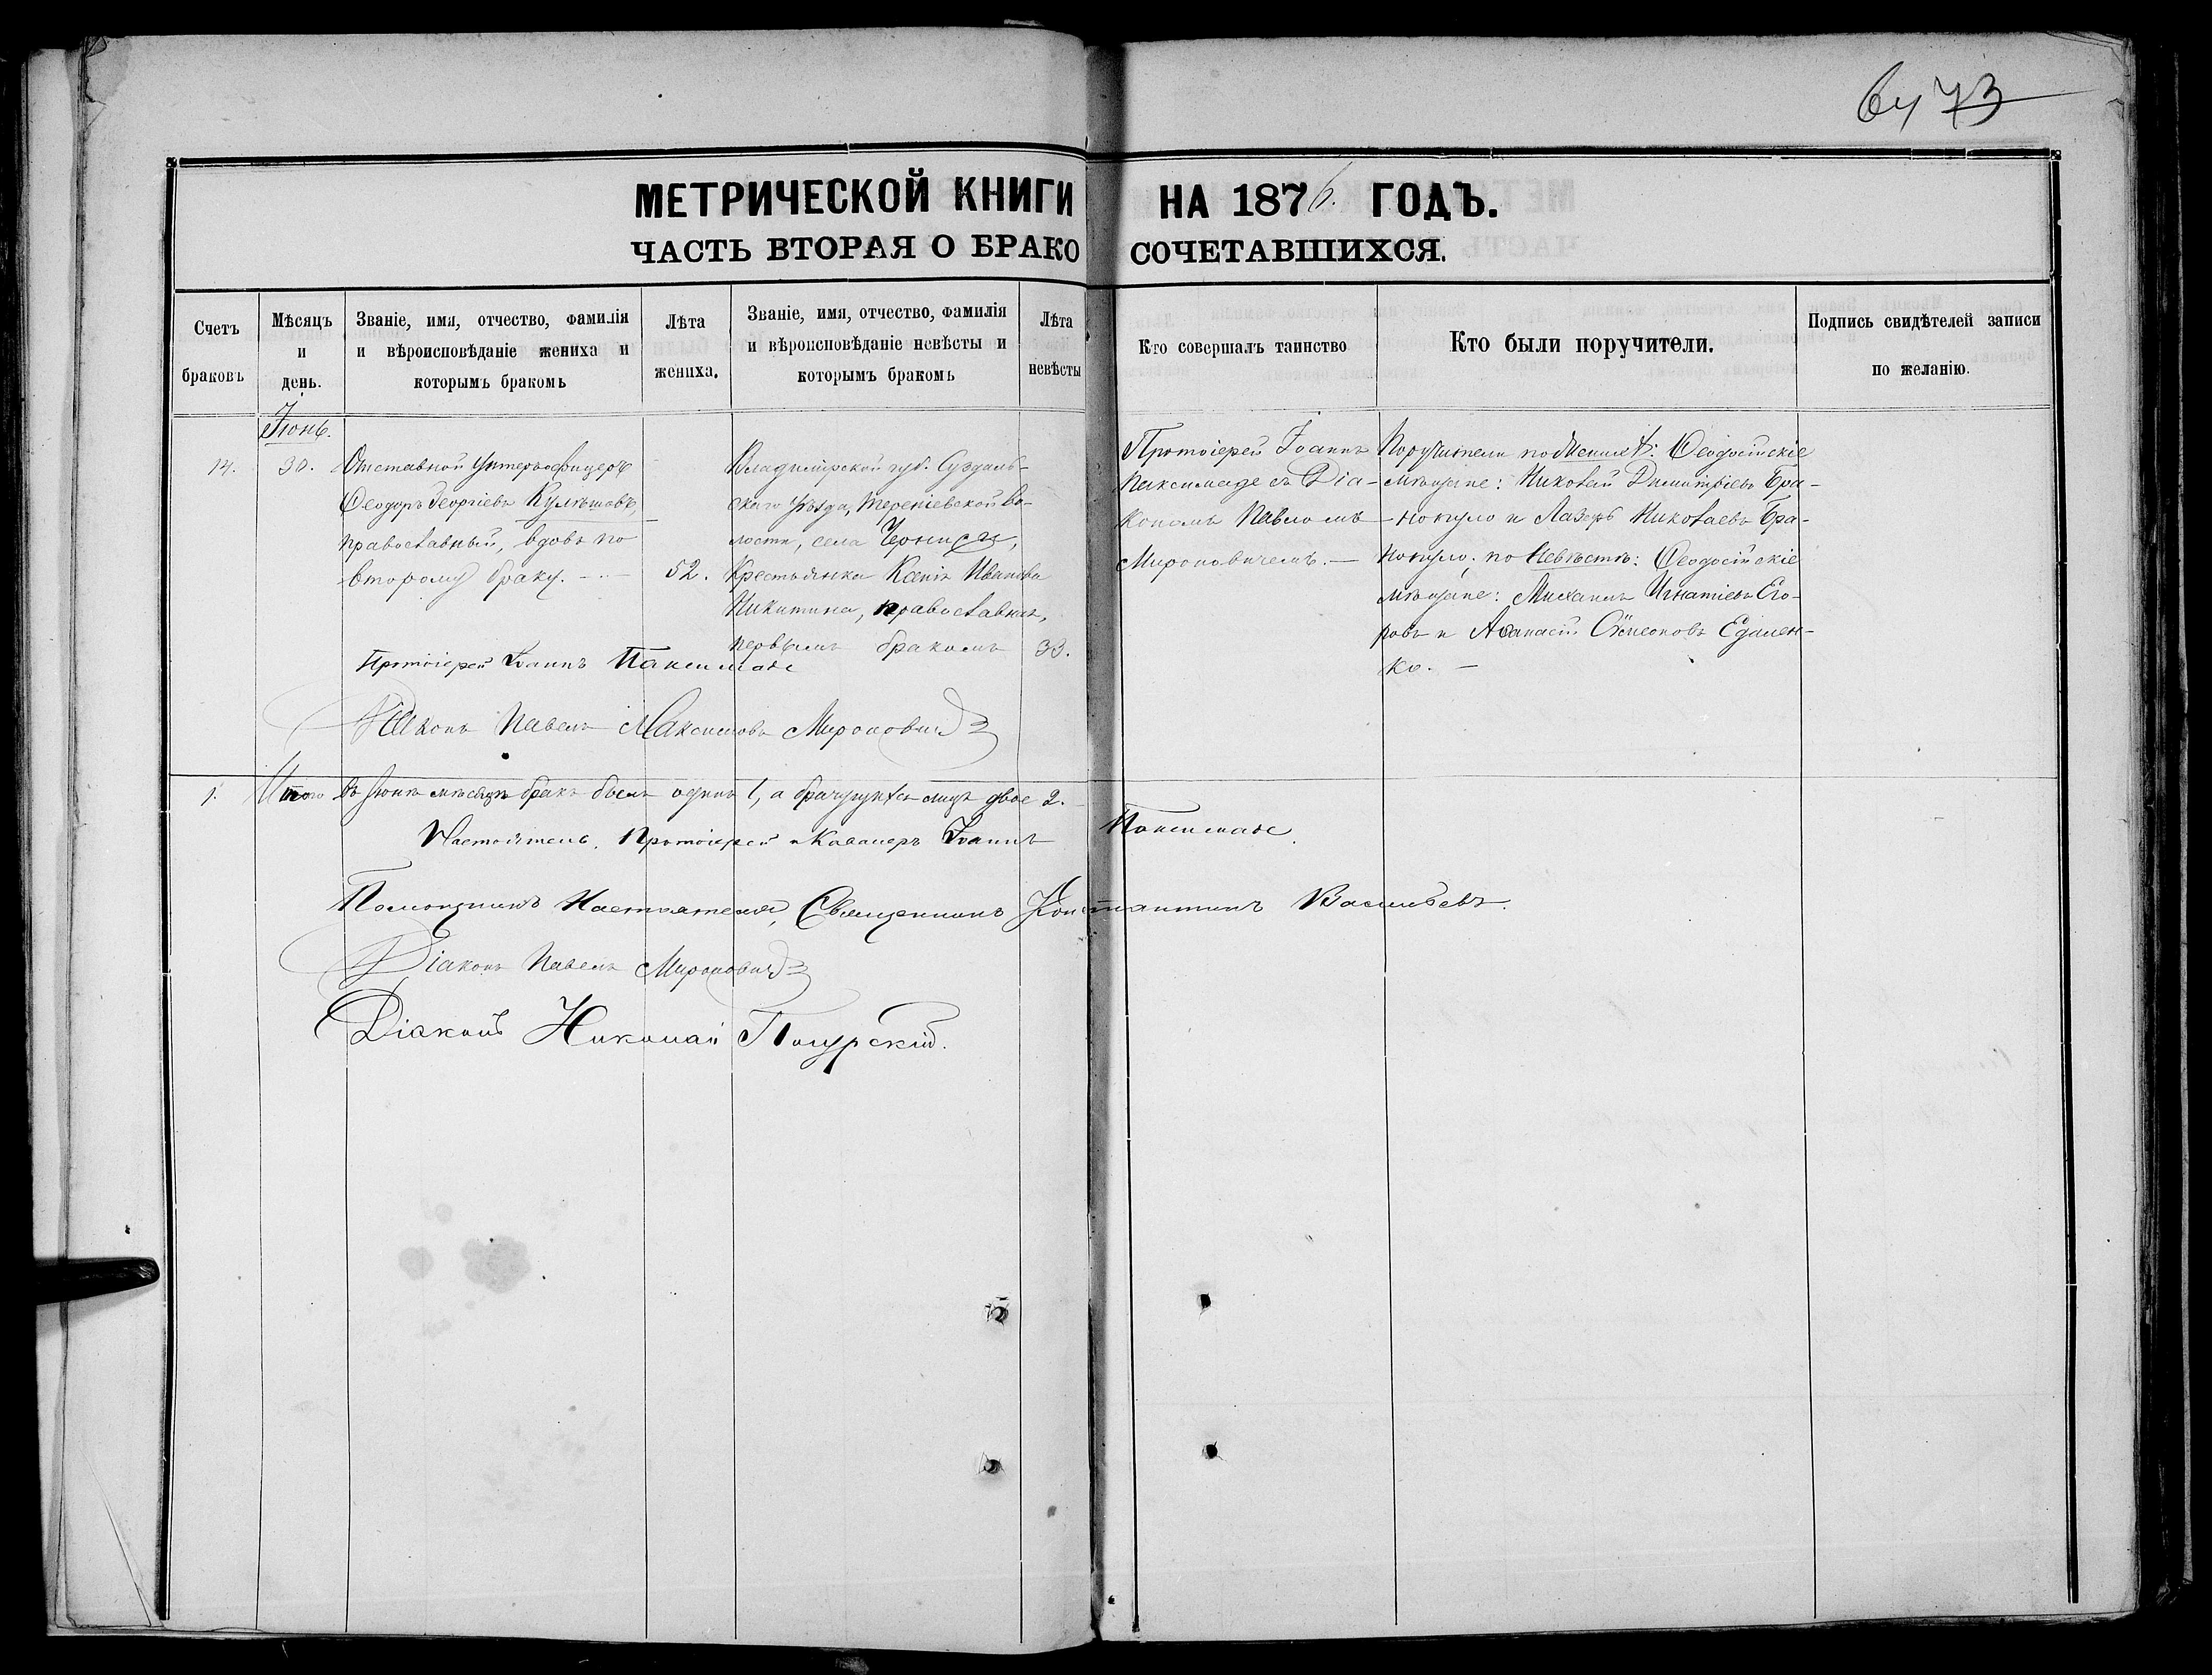 64 73
МЕТРИЧЕСКОЙ КНИГИ НА 1876. ГОДЪ.
ЧАСТЬ ВТОРАЯ О БРАКОСОЧЕТАВШИХСЯ.
Счетъ браковъ
Мѣсяцъ и день.
Званіе, имя, отчество, фамилія
и вѣроисповѣданіе жениха и
которымъ бракомъ
Лѣта жениха.
Званіе, имя, отчество, фамилія
и вѣроисповѣданіе невѣсты и
которымъ бракомъ
Лѣта невѣсты
Кто совершалъ таинство
Кто были поручители.
Подпись свидѣтелей записи
по желанію.
Іюнь.
14.
30.
Отставной Унтеръ-офицеръ
Ѳеодоръ Георгіевъ Кулѣшовъ,
православный, вдовъ по
второму браку.
52.
Владимірской губ. Суздаль-
скаго уѣзда, Тереніевской во-
лости, села
Крестьянка Ксенія Иванова
Никитина, православная,
первымъ бракомъ
33.
Протоіерей Іоаннъ
Паксимаде съ Діа-
кономъ Павломъ
Мироновичемъ. —
Поручители по Женихѣ: Ѳеодосійскіе
мѣщане: Николай Димитріевъ Бра-
нокуло и Лазарь Николаевъ Бра-
нокуло; по Невѣстѣ: Ѳеодосійскіе
мѣщане: Михаилъ Игнатіевъ Его-
ровъ и Аѳанасій Сѵмеоновъ
ко. —
Протоіерей Іоаннъ Паксимаде
Діаконъ Павелъ Максимовъ Мироновичъ
1. Итого въ Іюнѣ мѣсяцѣ бракъ былъ одинъ 1, а брачущихся лицъ двое 2.
Настоятель, Протоіерей и Кавалеръ Іоаннъ Паксимаде.
Помощникъ Настоятеля, Священникъ Константинъ Васильевъ.
Діаконъ Павелъ Мироновичъ
Діаконъ Николай